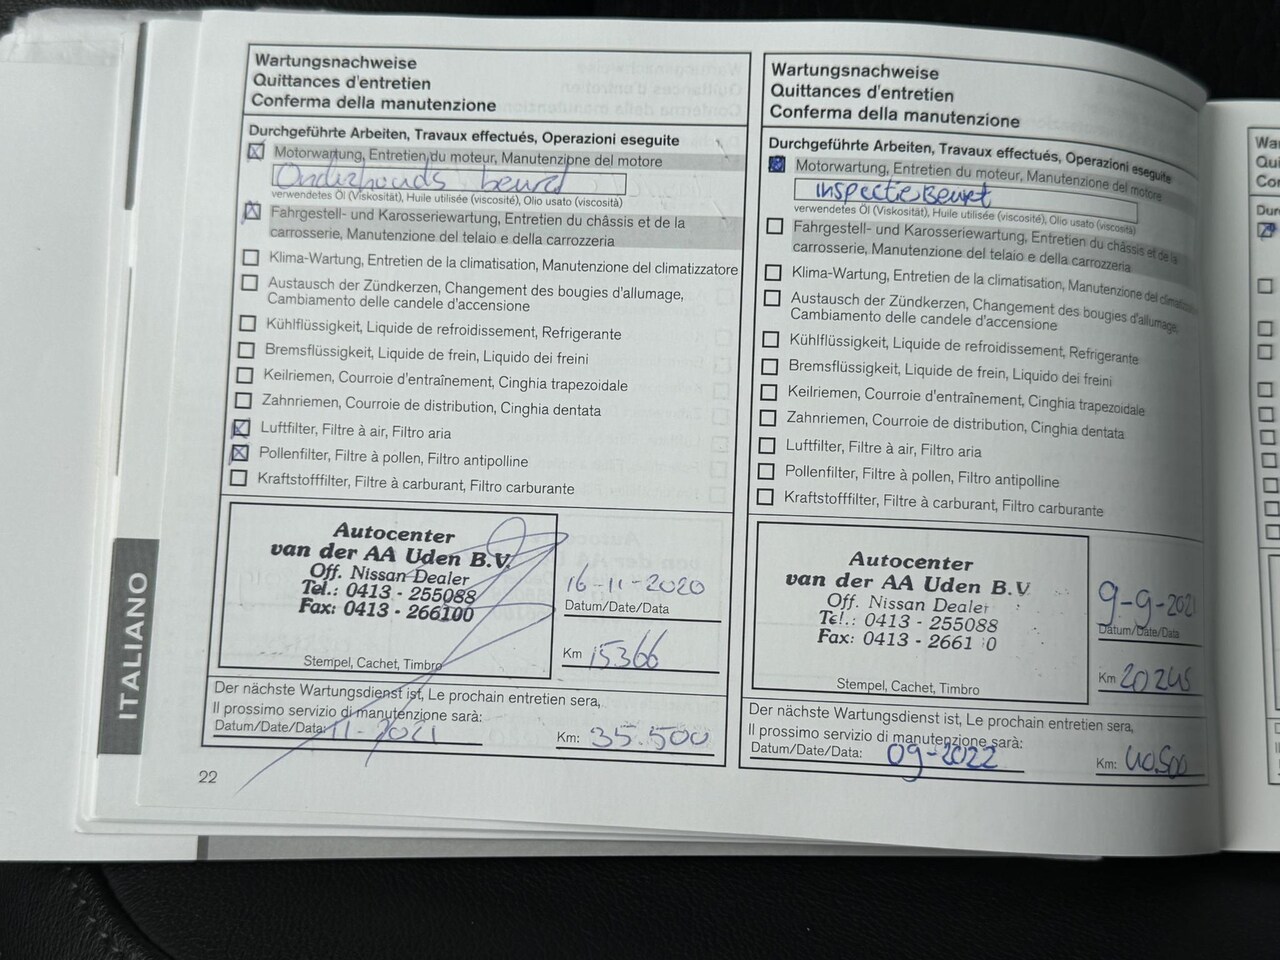 Wartungsnachweise
Quittances d'entretien
Conferma della manutenzione
Durchgeführte Arbeiten, Travaux effectués, Operazioni eseguite
Motorwartung, Entretien du moteur, Manutenzione del motore
Onderhouds beurt
verwendetes Öl (Viskosität), Huile utilisée (viscosité), Olio usato (viscosità)
Fahrgestell- und Karosseriewartung, Entretien du châssis et de la
carrosserie, Manutenzione del telaio e della carrozzeria
Klima-Wartung, Entretien de la climatisation, Manutenzione del climatizzatore
Austausch der Zündkerzen, Changement des bougies d'allumage,
Cambiamento delle candele d'accensione
Kühlflüssigkeit, Liquide de refroidissement, Refrigerante
Bremsflüssigkeit, Liquide de frein, Liquido dei freini
Keilriemen, Courroie d'entraînement, Cinghia trapezoidale
Zahnriemen, Courroie de distribution, Cinghia dentata
Luftfilter, Filtre à air, Filtro aria
Pollenfilter, Filtre à pollen, Filtro antipolline
Kraftstofffilter, Filtre à carburant, Filtro carburante
Autocenter
van der AA Uden B.V.
Off. Nissan Dealer
Tel.: 0413 - 255088
Fax: 0413 - 266100
Stempel, Cachet, Timbro
16-11-2020
Datum/Date/Data
Km 15366
Der nächste Wartungsdienst ist, Le prochain entretien sera,
Il prossimo servizio di manutenzione sarà:
Datum/Date/Data: 11-2021 Km: 35.500
22
ITALIANO
Wartungsnachweise
Quittances d'entretien
Conferma della manutenzione
Durchgeführte Arbeiten, Travaux effectués, Operazioni eseguite
Motorwartung, Entretien du moteur, Manutenzione del motore
inspectiebeurt
verwendetes Öl (Viskosität), Huile utilisée (viscosité), Olio usato (viscosità)
Fahrgestell- und Karosseriewartung, Entretien du châssis et de la
carrosserie, Manutenzione del telaio e della carrozzeria
Klima-Wartung, Entretien de la climatisation, Manutenzione del
Austausch der Zündkerzen, Changement des bougies d'allumage,
Cambiamento delle candele d'accensione
Kühlflüssigkeit, Liquide de refroidissement, Refrigerante
Bremsflüssigkeit, Liquide de frein, Liquido dei freini
Keilriemen, Courroie d'entraînement, Cinghia trapezoidale
Zahnriemen, Courroie de distribution, Cinghia dentata
Luftfilter, Filtre à air, Filtro aria
Pollenfilter, Filtre à pollen, Filtro antipolline
Kraftstofffilter, Filtre à carburant, Filtro carburante
Autocenter
van der AA Uden B.V
Off. Nissan Dealer
Tel.: 0413 - 255088
Fax: 0413 - 2661 0
Stempel, Cachet, Timbro
9-9-2021
Datum/Date/Data
Km 20245
Der nächste Wartungsdienst ist, Le prochain entretien sera,
Il prossimo servizio di manutenzione sarà:
Datum/Date/Data: 09-2022 Km: 40.500